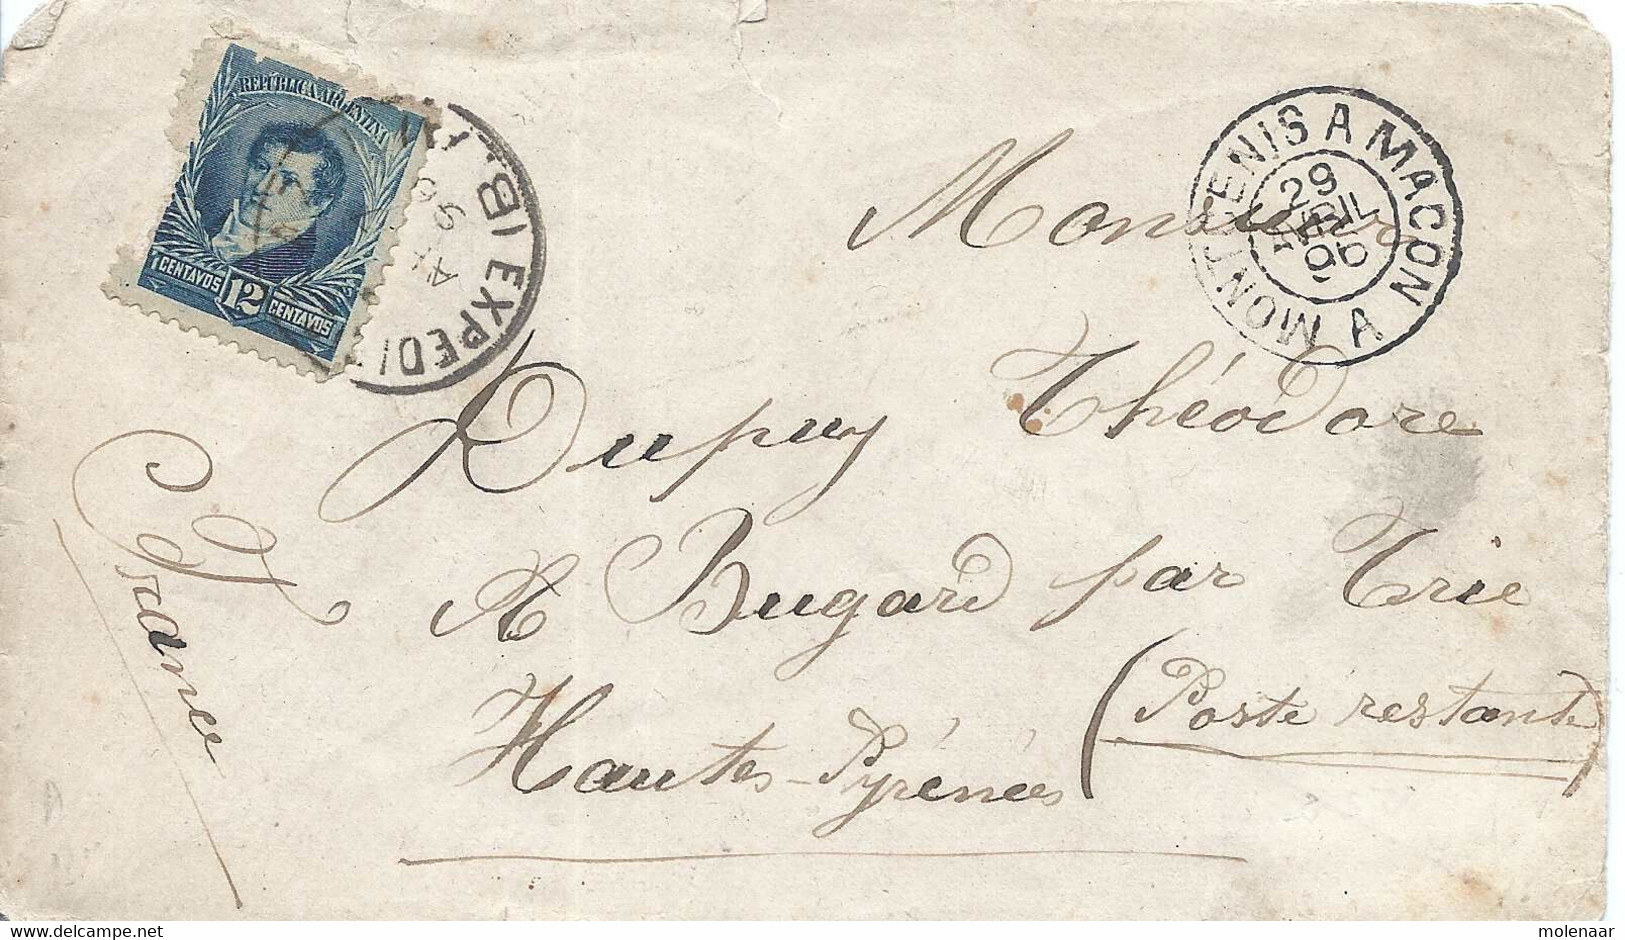 REPÚBLICA ARGENTINA
CENTAVOS 12 CENTAVOS
EXPEDI
96
MONT CENIS A MACON A
29
AVRIL
96
Monsieur
Dupuy Théodore
A Bugard par Trie
Hautes-Pyrénées (Poste restante)
France
molenaar